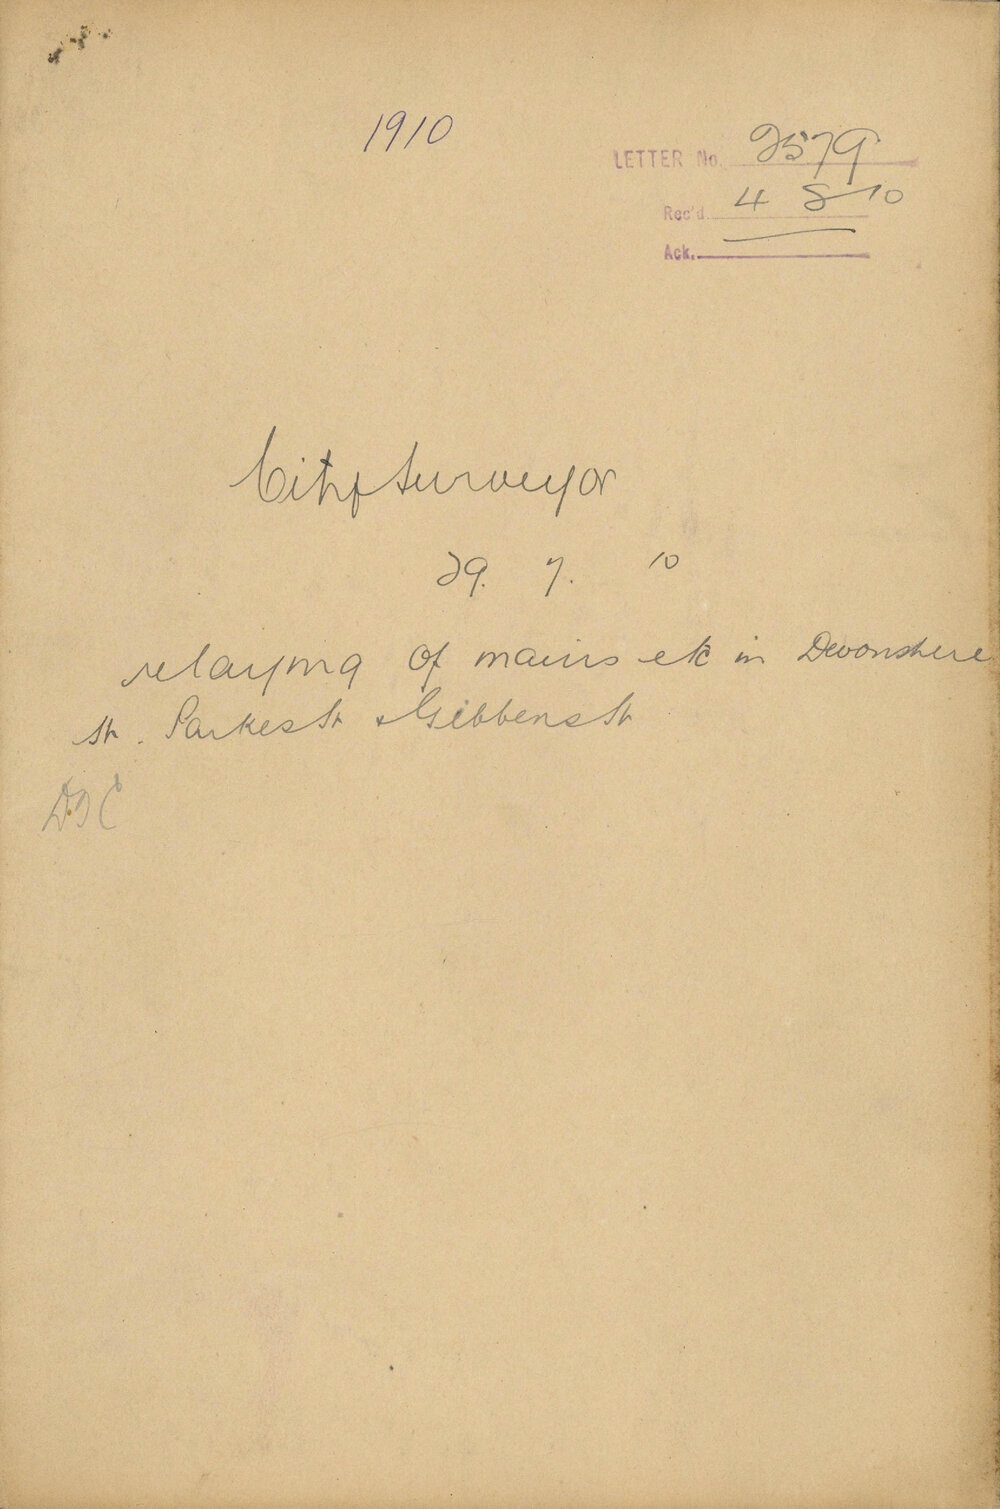 1910
LETTER No. 2579
Rec'd. 4 8 10
Ack.
City Surveyor
29. 7. 10
relaying of mains etc in Devonshire
St. Parkes St & Gibbens St